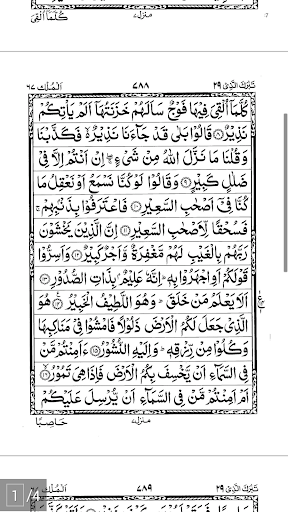 كُلَّمَآ اُلْقِىَ
منزل٧
تَبٰرَكَ الَّذِىْ ٢٩
٧٨٨
اَلْمُلْكِ ٦٧
كُلَّمَآ اُلْقِىَ فِيْهَا فَوْجٌ سَاَلَهُمْ خَزَنَتُهَآ اَلَمْ يَاْتِكُمْ
نَذِيْرٌ ۝٨ قَالُوْا بَلٰى قَدْ جَآءَنَا نَذِيْرٌ ۙ۬ فَكَذَّبْنَا
وَقُلْنَا مَا نَزَّلَ اللّٰهُ مِنْ شَىْءٍ ۚ اِنْ اَنْتُمْ اِلَّا فِىْ
ضَلٰلٍ كَبِيْرٍ ۝٩ وَقَالُوْا لَوْ كُنَّا نَسْمَعُ اَوْ نَعْقِلُ مَا
كُنَّا فِىْٓ اَصْحٰبِ السَّعِيْرِ ۝١٠ فَاعْتَرَفُوْا بِذَنْۢبِهِمْ ۚ
فَسُحْقًا لِّاَصْحٰبِ السَّعِيْرِ ۝١١ اِنَّ الَّذِيْنَ يَخْشَوْنَ
رَبَّهُمْ بِالْغَيْبِ لَهُمْ مَّغْفِرَةٌ وَّاَجْرٌ كَبِيْرٌ ۝١٢ وَاَسِرُّوْا
قَوْلَكُمْ اَوِ اجْهَرُوْا بِهٖ ؕ اِنَّهٗ عَلِيْمٌۢ بِذَاتِ الصُّدُوْرِ ۝١٣
اَلَا يَعْلَمُ مَنْ خَلَقَ ؕ وَهُوَ اللَّطِيْفُ الْخَبِيْرُ ۝١٤ هُوَ
الَّذِىْ جَعَلَ لَكُمُ الْاَرْضَ ذَلُوْلًا فَامْشُوْا فِىْ مَنَاكِبِهَا
وَكُلُوْا مِنْ رِّزْقِهٖ ؕ وَاِلَيْهِ النُّشُوْرُ ۝١٥ ءَاَمِنْتُمْ مَّنْ
فِى السَّمَآءِ اَنْ يَّخْسِفَ بِكُمُ الْاَرْضَ فَاِذَا هِىَ تَمُوْرُ ۝١٦
اَمْ اَمِنْتُمْ مَّنْ فِى السَّمَآءِ اَنْ يُّرْسِلَ عَلَيْكُمْ
منزل٧
حَاصِبًا
تَبٰرَكَ الَّذِىْ ٢٩
٧٨٩
اَلْمُلْكِ ٦٧
1 /4